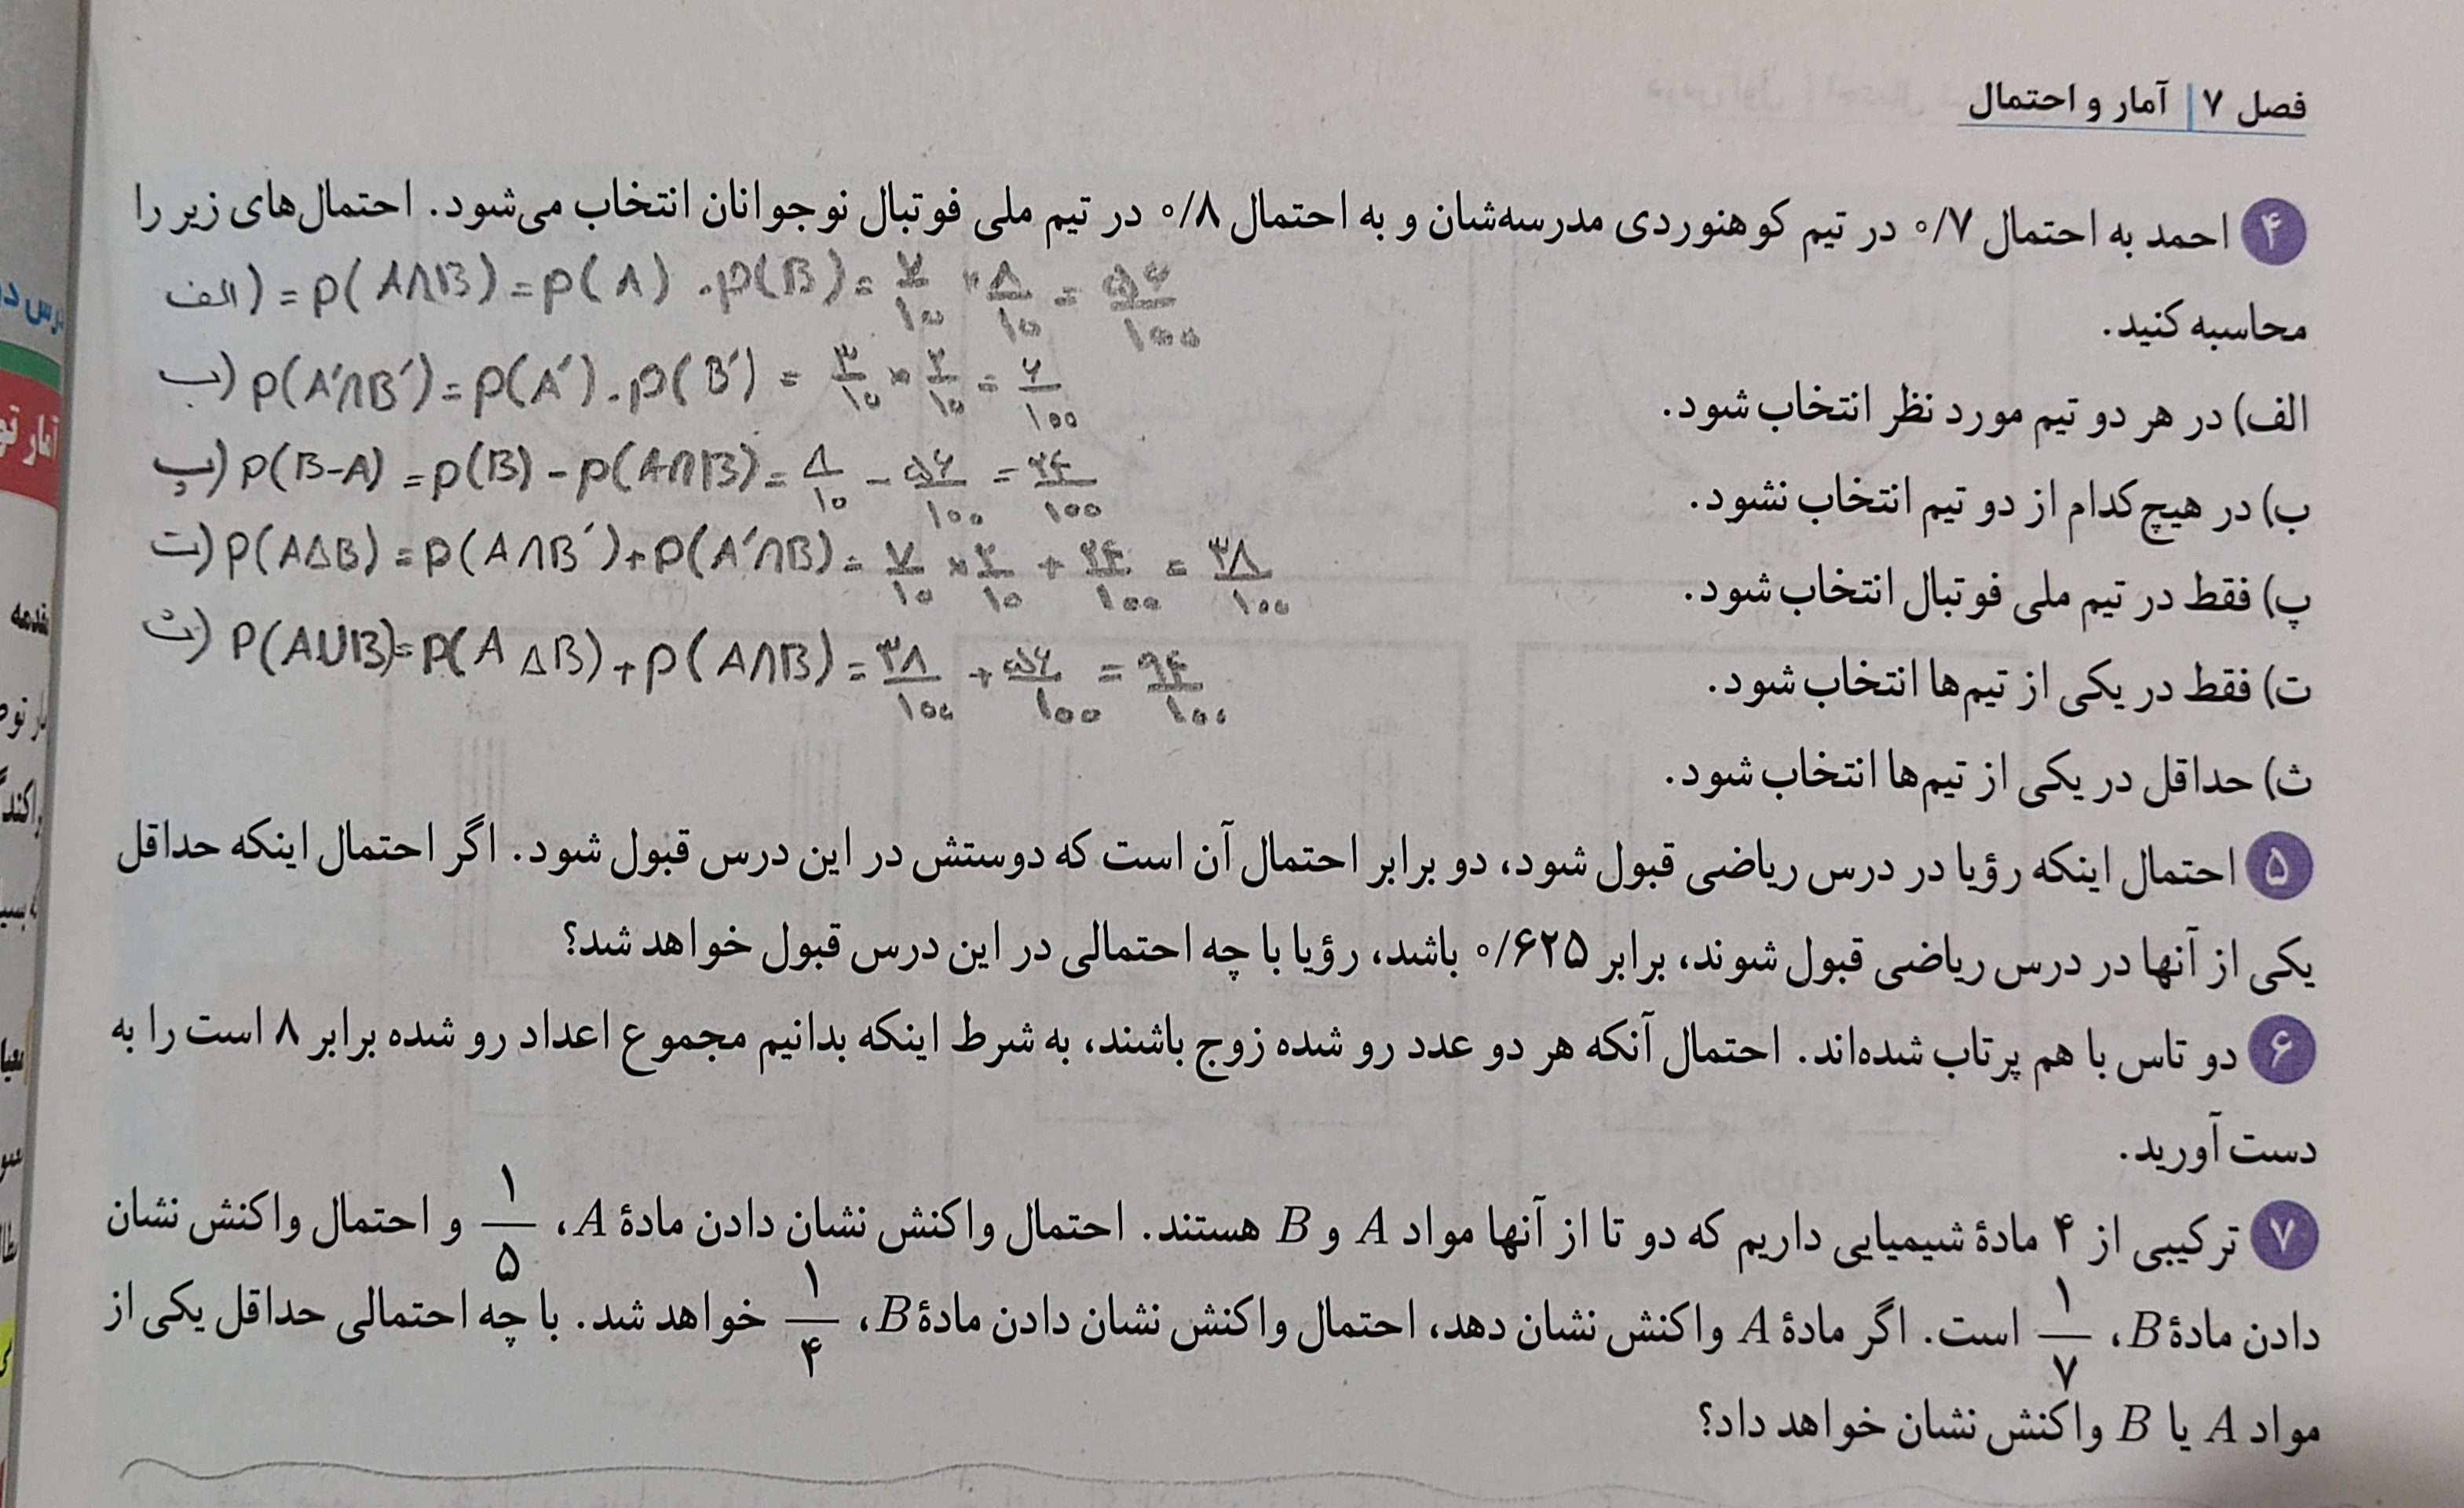 فصل ۷ | آمار و احتمال
۴ احمد به احتمال ۰/۷ در تیم کوهنوردی مدرسه‌شان و به احتمال ۰/۸ در تیم ملی فوتبال نوجوانان انتخاب می‌شود. احتمال‌های زیر را
محاسبه کنید.
الف) در هر دو تیم مورد نظر انتخاب شود.
ب) در هیچ‌کدام از دو تیم انتخاب نشود.
پ) فقط در تیم ملی فوتبال انتخاب شود.
ت) فقط در یکی از تیم‌ها انتخاب شود.
ث) حداقل در یکی از تیم‌ها انتخاب شود.
الف) = p(A∩B) = p(A) . p(B) = ۷/۱۰ × ۸/۱۰ = ۵۶/۱۰۰
ب) p(A′∩B′) = p(A′) . p(B′) = ۳/۱۰ × ۲/۱۰ = ۶/۱۰۰
پ) p(B-A) = p(B) - p(A∩B) = ۸/۱۰ - ۵۶/۱۰۰ = ۲۴/۱۰۰
ت) p(A∆B) = p(A∩B′) + p(A′∩B) = ۷/۱۰ × ۲/۱۰ + ۲۴/۱۰۰ = ۳۸/۱۰۰
ث) P(A∪B) = p(A∆B) + p(A∩B) = ۳۸/۱۰۰ + ۵۶/۱۰۰ = ۹۴/۱۰۰
۵ احتمال اینکه رؤیا در درس ریاضی قبول شود، دو برابر احتمال آن است که دوستش در این درس قبول شود. اگر احتمال اینکه حداقل
یکی از آنها در درس ریاضی قبول شوند، برابر ۰/۶۲۵ باشد، رؤیا با چه احتمالی در این درس قبول خواهد شد؟
۶ دو تاس با هم پرتاب شده‌اند. احتمال آنکه هر دو عدد رو شده زوج باشند، به شرط اینکه بدانیم مجموع اعداد رو شده برابر ۸ است را به
دست آورید.
۷ ترکیبی از ۴ مادهٔ شیمیایی داریم که دو تا از آنها مواد A و B هستند. احتمال واکنش نشان دادن مادهٔ A، ۱/۵ و احتمال واکنش نشان
دادن مادهٔ B، ۱/۷ است. اگر مادهٔ A واکنش نشان دهد، احتمال واکنش نشان دادن مادهٔ B، ۱/۴ خواهد شد. با چه احتمالی حداقل یکی از
مواد A یا B واکنش نشان خواهد داد؟